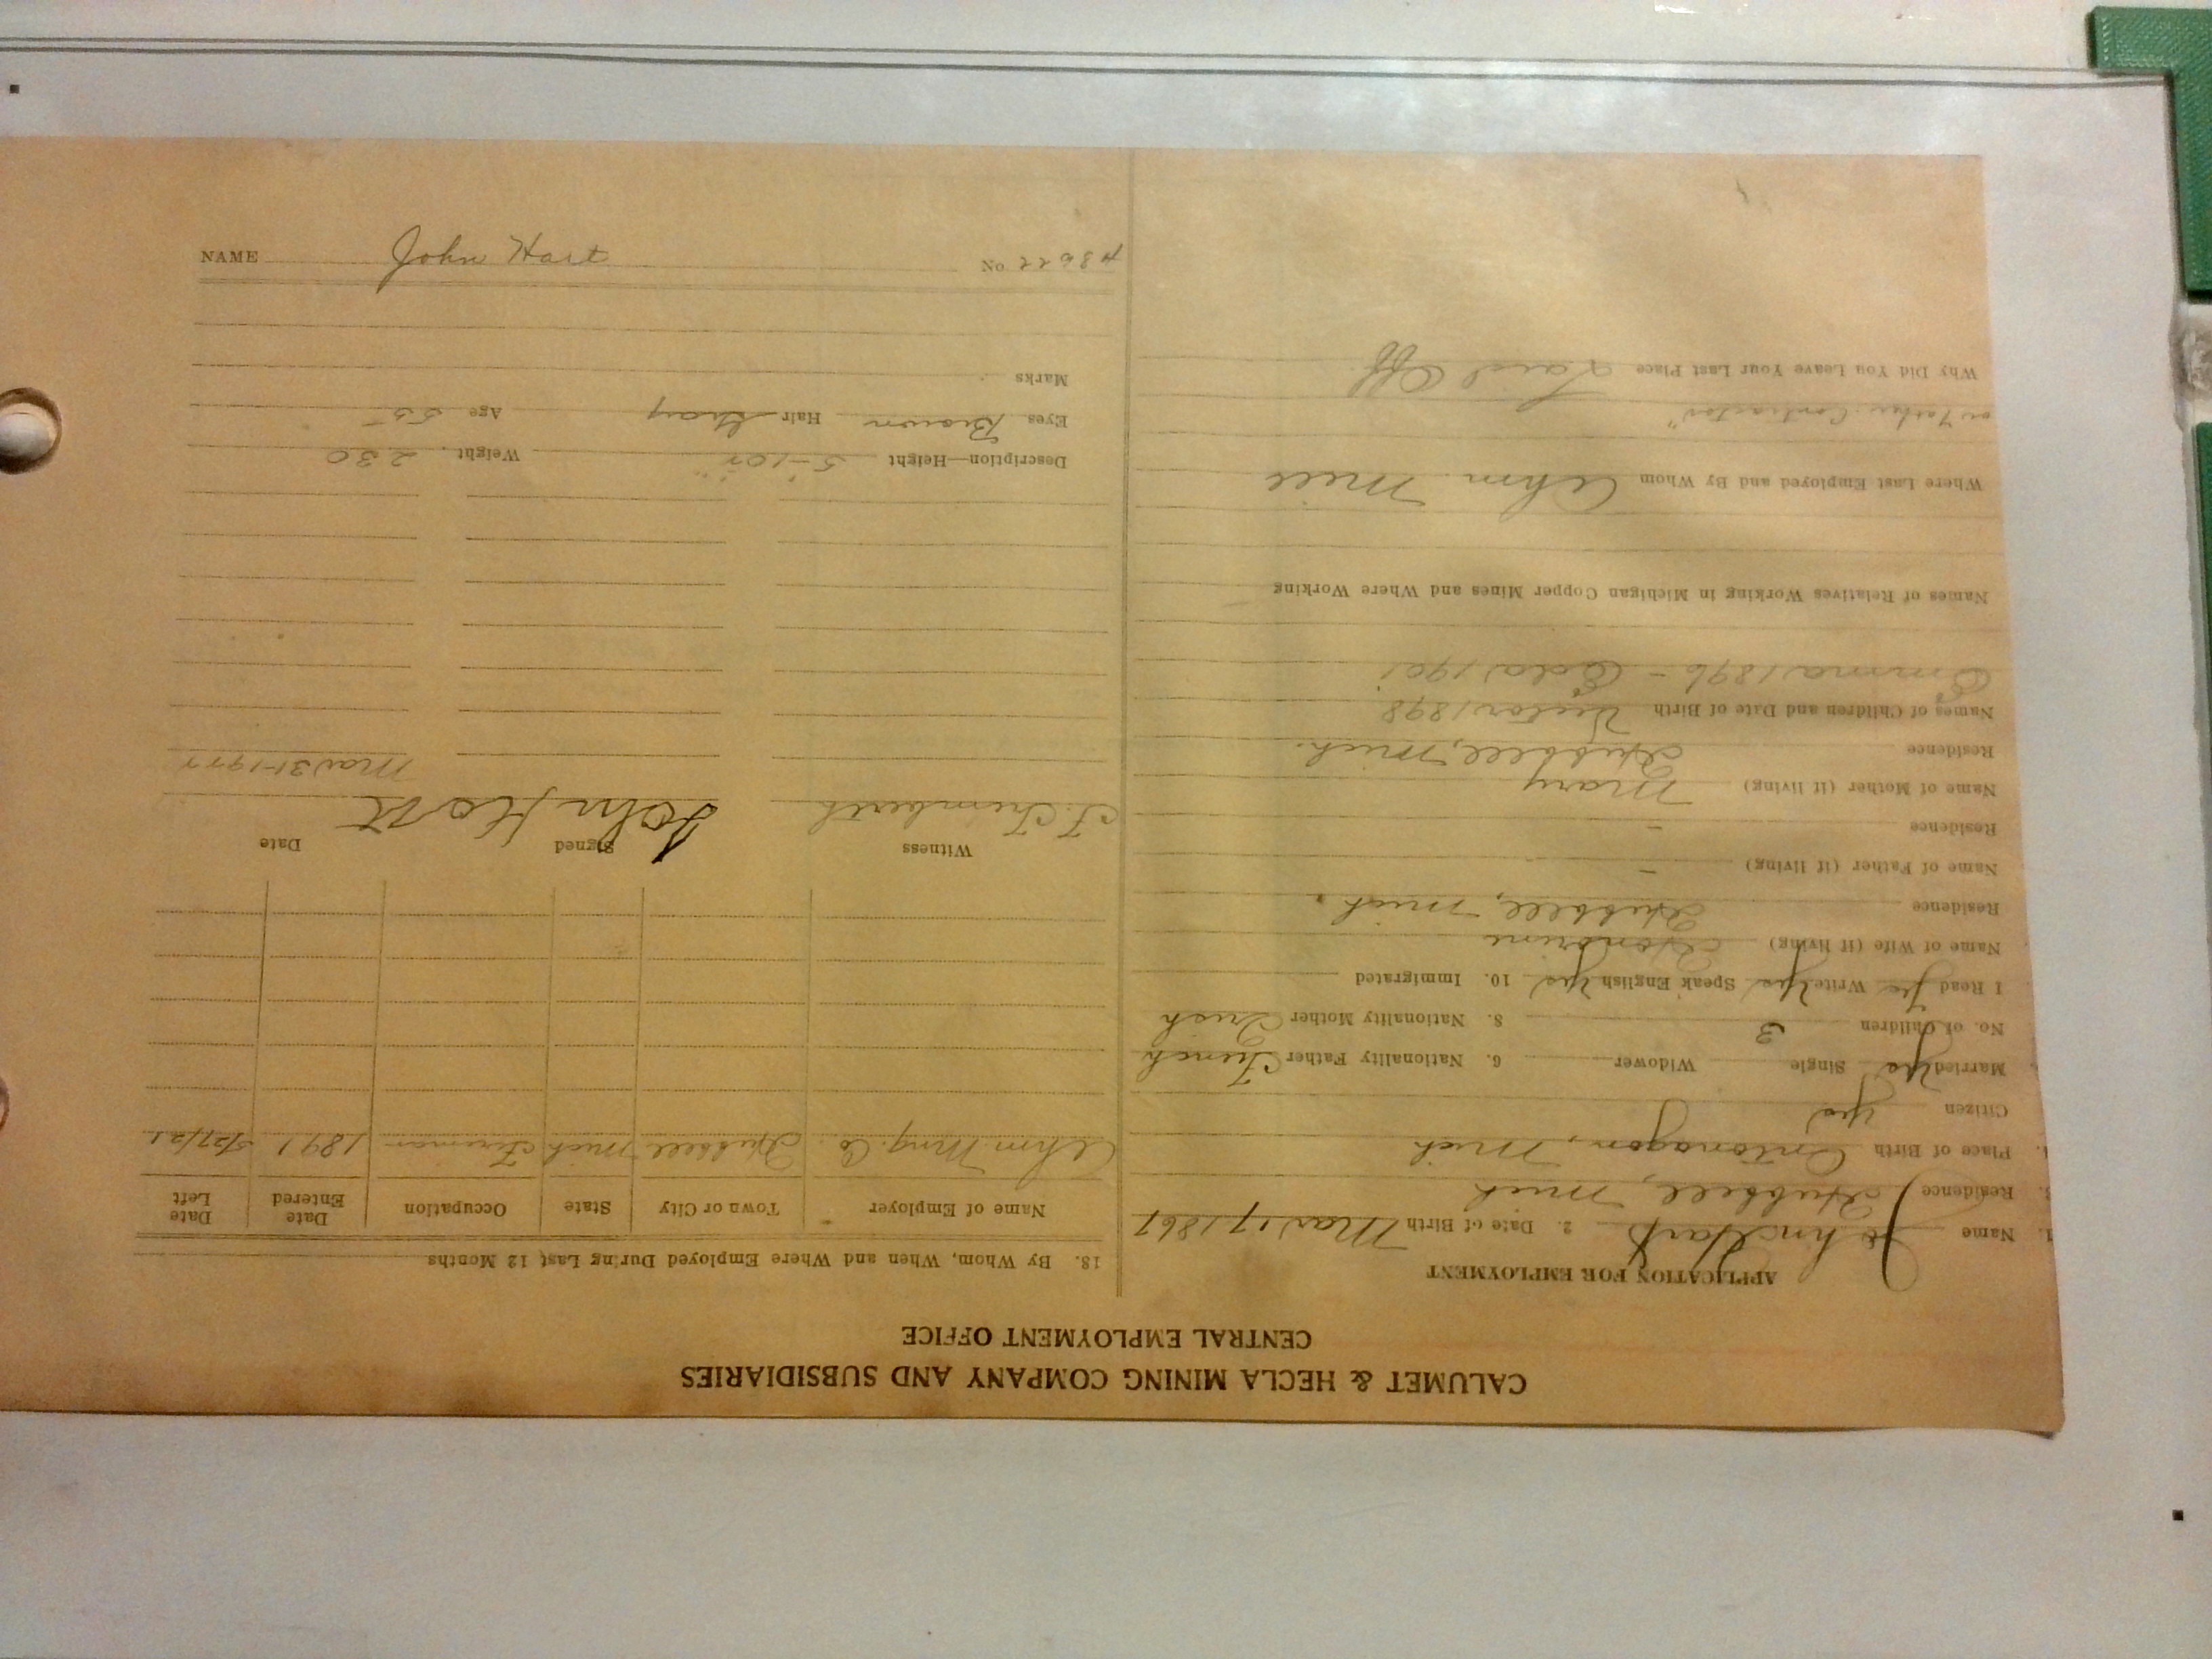 CALUMET & HECLA MINING COMPANY AND SUBSIDIARIES
CENTRAL EMPLOYMENT OFFICE
APPLICATION FOR EMPLOYMENT
1. Name John Hart 2. Date of Birth Mar 17 1867
3. Residence Hubbell, Mich
4. Place of Birth Ontonagon, Mich
Citizen Yes
Married Yes Single Widower 6. Nationality Father French
No. of Children 3 8. Nationality Mother Irish
I Read Yes Write Yes Speak English Yes 10. Immigrated
Name of Wife (if living)
Residence Hubbell, Mich.
Name of Father (if living) –
Residence –
Name of Mother (if living) Mary
Residence Hubbell, Mich.
Names of Children and Date of Birth Victor 1898
Emma 1896 – Eda 1901
Names of Relatives Working in Michigan Copper Mines and Where Working
Where Last Employed and By Whom Ahm. Mill
Contractor"
Why Did You Leave Your Last Place Laid Off
18. By Whom, When and Where Employed During Last 12 Months
Name of Employer Town or City State Occupation Date Entered Date Left
Ahm. Mng. Co. Hubbell Mich 1891
Witness Signed Date
John Hart Mar 31-1922
Description—Height 5-10" Weight 230
Eyes Brown Hair Gray Age 55
Marks
NAME John Hart No